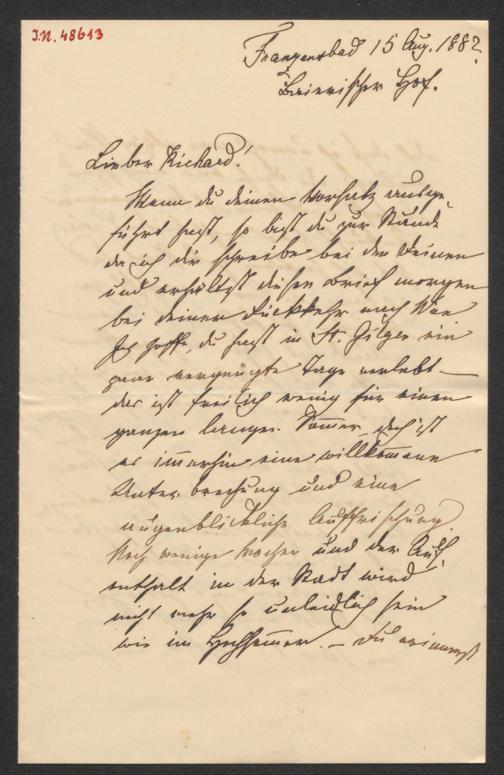 I.N. 48613
Franzensbad 15 Aug. 1882
Bairischer Hof.
Lieber Richard!
Wenn du deinen Vorsatz ausge-
führt hast, so bist du zur Stunde
da ich dir schreibe bei den Deinen
und erhältst diesen Brief morgen
bei deiner Rückkehr nach Wien
Ich hoffe, du hast in St. Gilgen ein
paar vergnügte Tage verlebt –
das ist freilich wenig für einen
ganzen langen Sommer, doch ist
es immerhin eine willkommene
Unterbrechung und eine
augenblickliche Auffrischung.
Noch wenige Wochen und der Auf-
enthalt in der Stadt wird
nicht mehr so unleidlich sein
wie im Hochsommer. – Du erinnerst